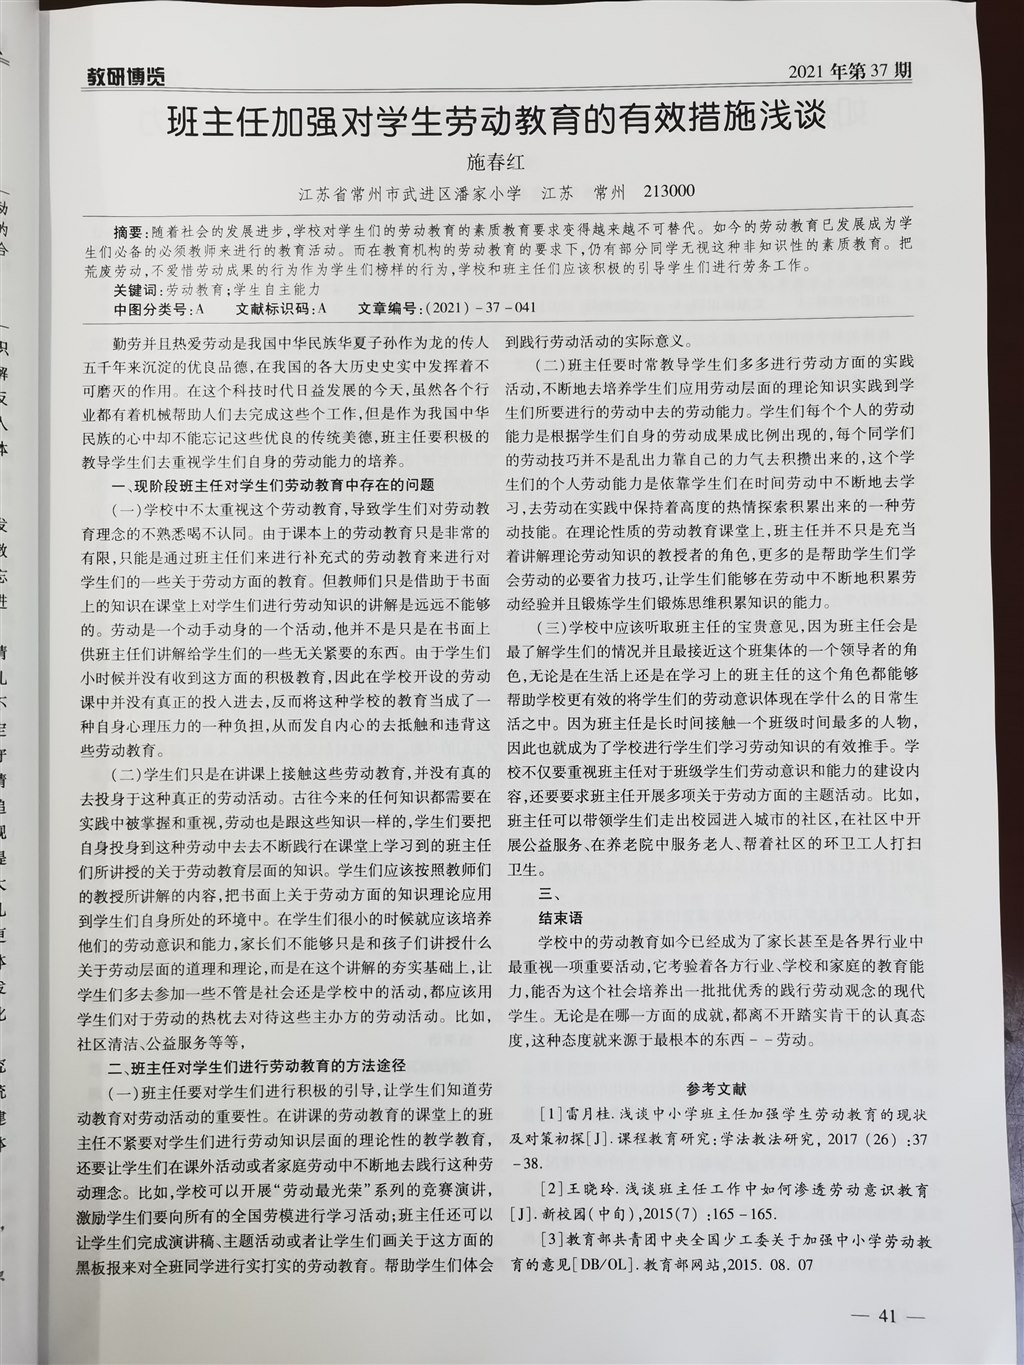 教研博览
2021 年第 37 期
班主任加强对学生劳动教育的有效措施浅谈
施春红
江苏省常州市武进区潘家小学 江苏 常州 213000
摘要:随着社会的发展进步,学校对学生们的劳动教育的素质教育要求变得越来越不可替代。如今的劳动教育已发展成为学
生们必备的必须教师来进行的教育活动。而在教育机构的劳动教育的要求下,仍有部分同学无视这种非知识性的素质教育。把
荒废劳动,不爱惜劳动成果的行为作为学生们榜样的行为,学校和班主任们应该积极的引导学生们进行劳务工作。
关键词:劳动教育;学生自主能力
中图分类号:A 文献标识码:A 文章编号:(2021)-37-041
勤劳并且热爱劳动是我国中华民族华夏子孙作为龙的传人
五千年来沉淀的优良品德,在我国的各大历史史实中发挥着不
可磨灭的作用。在这个科技时代日益发展的今天,虽然各个行
业都有着机械帮助人们去完成这些个工作,但是作为我国中华
民族的心中却不能忘记这些优良的传统美德,班主任要积极的
教导学生们去重视学生们自身的劳动能力的培养。
一、现阶段班主任对学生们劳动教育中存在的问题
(一)学校中不太重视这个劳动教育,导致学生们对劳动教
育理念的不熟悉喝不认同。由于课本上的劳动教育只是非常的
有限,只能是通过班主任们来进行补充式的劳动教育来进行对
学生们的一些关于劳动方面的教育。但教师们只是借助于书面
上的知识在课堂上对学生们进行劳动知识的讲解是远远不能够
的。劳动是一个动手动身的一个活动,他并不是只是在书面上
供班主任们讲解给学生们的一些无关紧要的东西。由于学生们
小时候并没有收到这方面的积极教育,因此在学校开设的劳动
课中并没有真正的投入进去,反而将这种学校的教育当成了一
种自身心理压力的一种负担,从而发自内心的去抵触和违背这
些劳动教育。
(二)学生们只是在讲课上接触这些劳动教育,并没有真的
去投身于这种真正的劳动活动。古往今来的任何知识都需要在
实践中被掌握和重视,劳动也是跟这些知识一样的,学生们要把
自身投身到这种劳动中去去不断践行在课堂上学习到的班主任
们所讲授的关于劳动教育层面的知识。学生们应该按照教师们
的教授所讲解的内容,把书面上关于劳动方面的知识理论应用
到学生们自身所处的环境中。在学生们很小的时候就应该培养
他们的劳动意识和能力,家长们不能够只是和孩子们讲授什么
关于劳动层面的道理和理论,而是在这个讲解的夯实基础上,让
学生们多去参加一些不管是社会还是学校中的活动,都应该用
学生们对于劳动的热枕去对待这些主办方的劳动活动。比如,
社区清洁、公益服务等等,
二、班主任对学生们进行劳动教育的方法途径
(一)班主任要对学生们进行积极的引导,让学生们知道劳
动教育对劳动活动的重要性。在讲课的劳动教育的课堂上的班
主任不紧要对学生们进行劳动知识层面的理论性的教学教育,
还要让学生们在课外活动或者家庭劳动中不断地去践行这种劳
动理念。比如,学校可以开展“劳动最光荣”系列的竞赛演讲,
激励学生们要向所有的全国劳模进行学习活动;班主任还可以
让学生们完成演讲稿、主题活动或者让学生们画关于这方面的
黑板报来对全班同学进行实打实的劳动教育。帮助学生们体会
到践行劳动活动的实际意义。
(二)班主任要时常教导学生们多多进行劳动方面的实践
活动,不断地去培养学生们应用劳动层面的理论知识实践到学
生们所要进行的劳动中去的劳动能力。学生们每个个人的劳动
能力是根据学生们自身的劳动成果成比例出现的,每个同学们
的劳动技巧并不是乱出力靠自己的力气去积攒出来的,这个学
生们的个人劳动能力是依靠学生们在时间劳动中不断地去学
习,去劳动在实践中保持着高度的热情探索积累出来的一种劳
动技能。在理论性质的劳动教育课堂上,班主任并不只是充当
着讲解理论劳动知识的教授者的角色,更多的是帮助学生们学
会劳动的必要省力技巧,让学生们能够在劳动中不断地积累劳
动经验并且锻炼学生们锻炼思维积累知识的能力。
(三)学校中应该听取班主任的宝贵意见,因为班主任会是
最了解学生们的情况并且最接近这个班集体的一个领导者的角
色,无论是在生活上还是在学习上的班主任的这个角色都能够
帮助学校更有效的将学生们的劳动意识体现在学什么的日常生
活之中。因为班主任是长时间接触一个班级时间最多的人物,
因此也就成为了学校进行学生们学习劳动知识的有效推手。学
校不仅要重视班主任对于班级学生们劳动意识和能力的建设内
容,还要要求班主任开展多项关于劳动方面的主题活动。比如,
班主任可以带领学生们走出校园进入城市的社区,在社区中开
展公益服务、在养老院中服务老人、帮着社区的环卫工人打扫
卫生。
三、
结束语
学校中的劳动教育如今已经成为了家长甚至是各界行业中
最重视一项重要活动,它考验着各方行业、学校和家庭的教育能
力,能否为这个社会培养出一批批优秀的践行劳动观念的现代
学生。无论是在哪一方面的成就,都离不开踏实肯干的认真态
度,这种态度就来源于最根本的东西--劳动。
参考文献
[1]雷月桂.浅谈中小学班主任加强学生劳动教育的现状
及对策初探[J].课程教育研究:学法教法研究, 2017 (26) :37
-38.
[2]王晓玲.浅谈班主任工作中如何渗透劳动意识教育
[J].新校园(中旬),2015(7) :165-165.
[3]教育部共青团中央全国少工委关于加强中小学劳动教
育的意见[DB/OL].教育部网站,2015. 08. 07
— 41 —